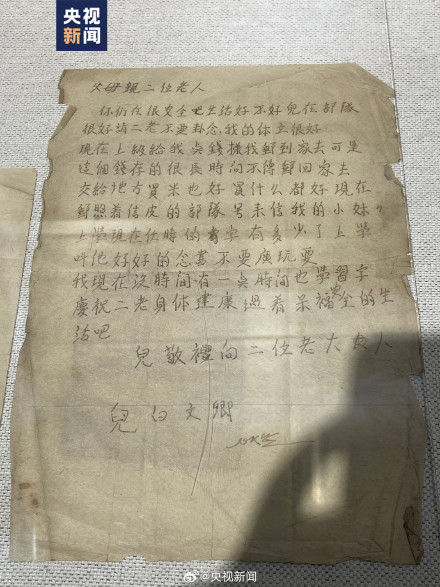 央视新闻
父母親二位老人
你们在很安全 生活好不好兒在部隊
很好請二老不要卦念,我的体 很好
現在上級給我 錢 我郵到家去可是
這個錢存的很長時間不得郵回家去
交給地方買米也好買什么都好現在
郵照着信皮的部隊号來信我的小妹
上學現在 時 字有多少了上學
叫他好好的念書不要廣玩耍
我現在沒時間有一 時間也學習字
慶祝二老身体建康過着 福 的生
活吧
兒敬禮向二位老大 人
兒白文卿
@央视新闻